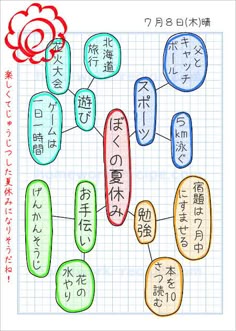 7月8日(木)晴
ぼくの夏休み
スポーツ
父と
キャッチ
ボール
5km泳ぐ
勉強
宿題は7月中
にすませる
本を10
さつ読む
遊び
北海道
旅行
花火大会
ゲームは
一日一時間
お手伝い
げんかんそうじ
花の
水やり
楽しくてじゅうじつした夏休みになりそうだね!